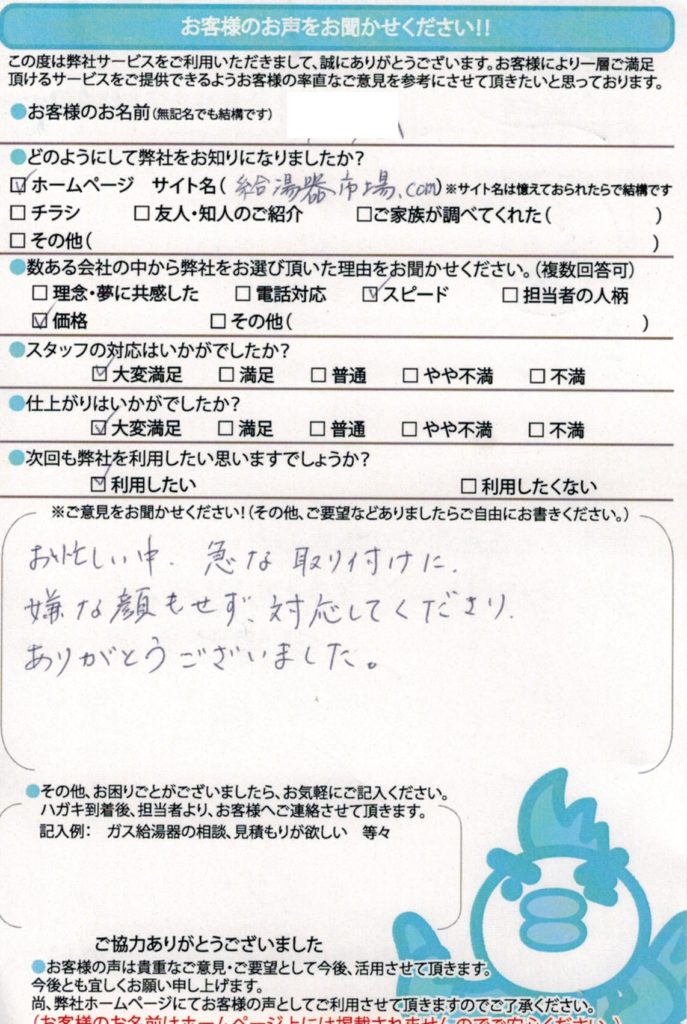 お客様のお声をお聞かせください!!
この度は弊社サービスをご利用いただきまして、誠にありがとうございます。お客様により一層ご満足
頂けるサービスをご提供できるようお客様の率直なご意見を参考にさせて頂きたいと思っております。
●お客様のお名前(無記名でも結構です)
●どのようにして弊社をお知りになりましたか?
☑ホームページ サイト名(給湯器市場.com)※サイト名は憶えておられたらで結構です
□チラシ □友人・知人のご紹介 □ご家族が調べてくれた( )
□その他( )
●数ある会社の中から弊社をお選び頂いた理由をお聞かせください。(複数回答可)
□理念・夢に共感した □電話対応 ☑スピード □担当者の人柄
☑価格 □その他( )
●スタッフの対応はいかがでしたか?
☑大変満足 □満足 □普通 □やや不満 □不満
●仕上がりはいかがでしたか?
☑大変満足 □満足 □普通 □やや不満 □不満
●次回も弊社を利用したい思いますでしょうか?
☑利用したい □利用したくない
※ご意見をお聞かせください!(その他、ご要望などありましたらご自由にお書きください。)
お忙しい中、急な取り付けに、
嫌な顔もせず、対応してくださり、
ありがとうございました。
●その他、お困りごとがございましたら、お気軽にご記入ください。
ハガキ到着後、担当者より、お客様へご連絡させて頂きます。
記入例: ガス給湯器の相談、見積もりが欲しい 等々
ご協力ありがとうございました
●お客様の声は貴重なご意見・ご要望として今後、活用させて頂きます。
今後とも宜しくお願い申し上げます。
尚、弊社ホームページにてお客様の声としてご利用させて頂きますのでご了承ください。
(お客様のお名前はホームページ上には掲載されませんのでご安心ください。)